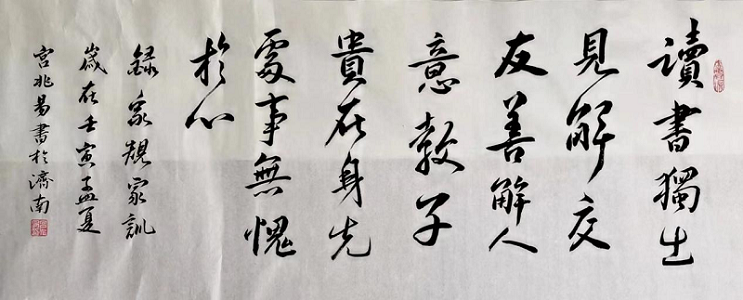 讀書獨出
見解交
友善解人
意教子
貴在身先
處事無愧
於心
錄家規家訓
歲在壬寅孟夏
宮兆易書於濟南